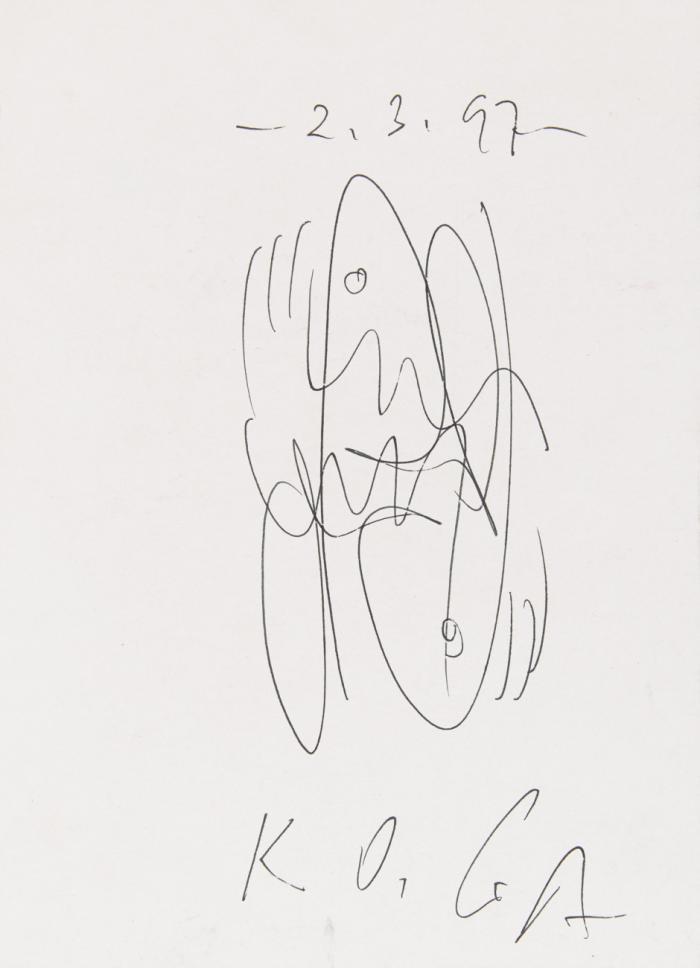 – 2. 3. 97 –
K O. G A